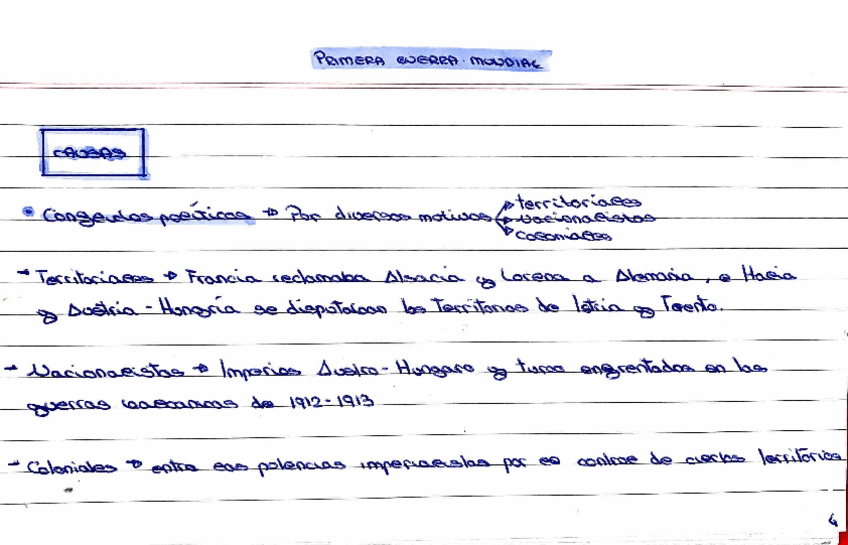 PRIMERA GUERRA MUNDIAL
CAUSAS
• Conflictos políticos → Por diversos motivos → territoriales
→ Nacionalistas
→ Coloniales
- Territoriales → Francia reclamaba Alsacia y Lorena a Alemania, e Italia
y Austria-Hungría se disputaban los territorios de Istria y Trento.
- Nacionalistas → Imperios Austro-Hungaro y turco enfrentados en las
guerras balcanicas de 1912-1913
- Coloniales → entre las potencias imperialistas por el control de ciertos territorios